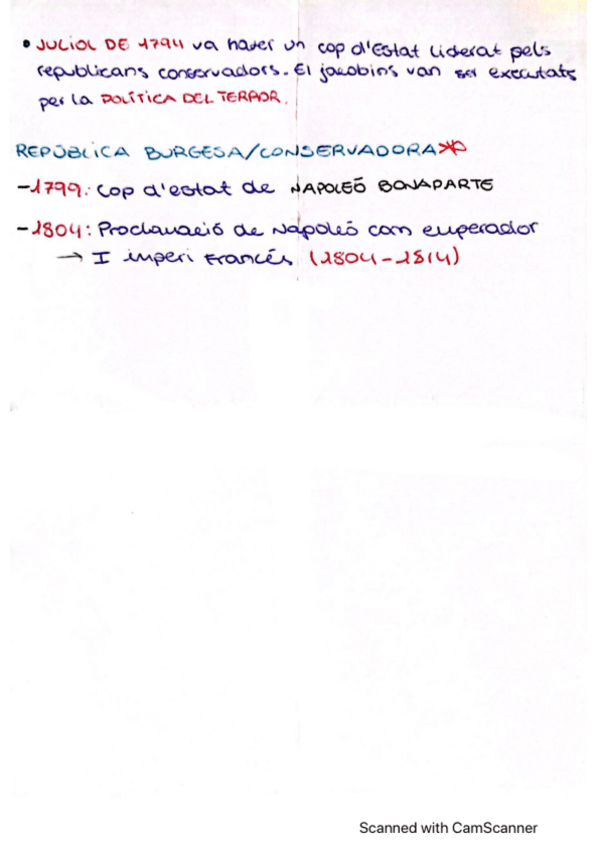 • JULIOL DE 1794 va haver un cop d'Estat liderat pels
republicans conservadors. El jacobins van ser executats
per la POLÍTICA DEL TERROR.
REPÚBLICA BURGESA/CONSERVADORA
-1799: Cop d'estat de NAPOLEÓ BONAPARTE
-1804: Proclamació de Napoleó com emperador
→ I imperi Francés (1804-1814)
Scanned with CamScanner